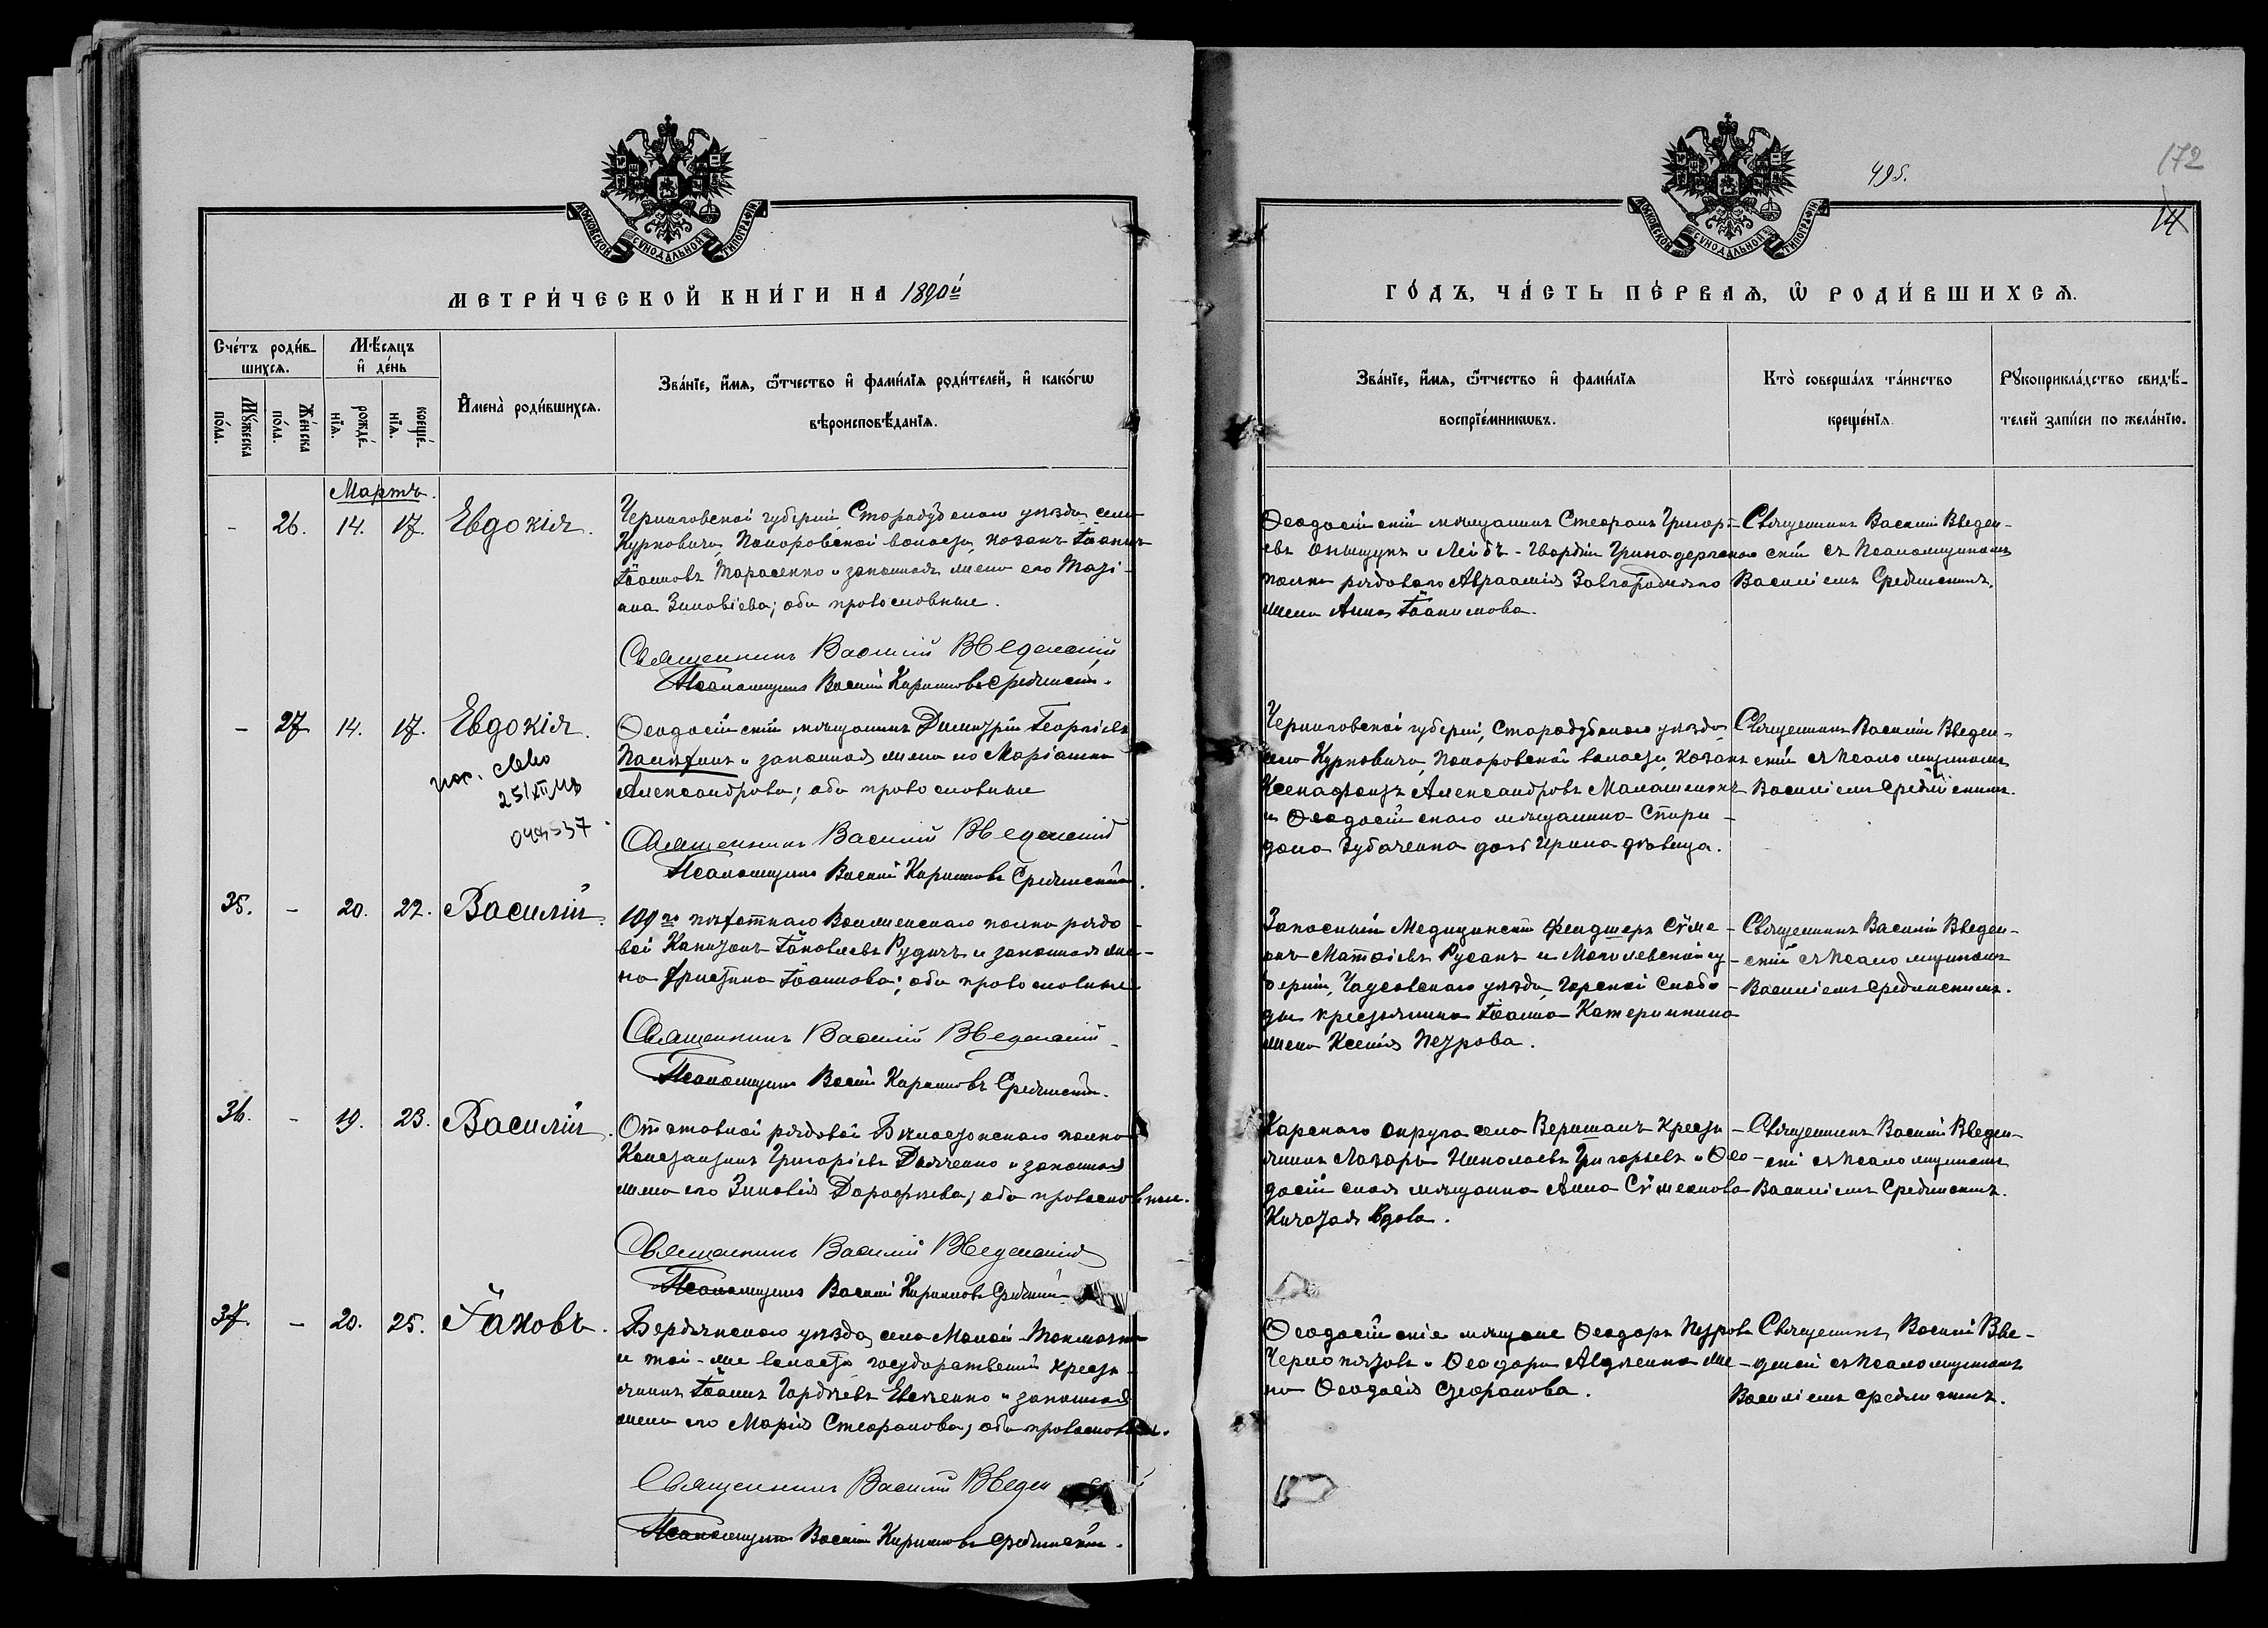 МОСКОВСКОЙ СѴНОДАЛЬНОЙ ТИПОГРАФІИ
МЕТРИ́ЧЕСКОЙ КНИ́ГИ НА 1890й
Сче́тъ роди́в-
шихсѧ.
Мѣ́сѧцъ
и҆ де́нь
Мꙋ́жеска
по́ла.
Же́нска
по́ла.
рожде́-
нїѧ.
креще́-
нїѧ.
И҆мена̀ роди́вшихсѧ.
Зва́нїе, и҆́мѧ, ѻ҆́тчество и҆ фами́лїѧ роди́телей, и҆ како́гѡ
вѣроисповѣ́данїѧ.
Мартъ.
- 26. 14. 17. Евдокія.
Черниговской губерніи Стародубскаго уѣзда села
Курковичъ, Поноровской волости, козакъ Іоаннъ
Іоанновъ Тарасенко и законная жена его Таті-
ана Зиновіева; оба православные.
Священникъ Василій Введенскій
Псаломщикъ Василій Кирилловъ Срединскій.
- 27 14. 17. Евдокія.
Ѳеодосійскій мѣщанинъ Димитрій Георгіевъ
и законная жена его Маріанна
Александрова; оба православные
Священникъ Василій Введенскій
Псаломщикъ Василій Кирилловъ Срединскій.
35. - 20. 22. Василій.
199го пѣхотнаго полка рядо-
вой Капитонъ Іаковлевъ Рудичъ и законная же-
на Христина Іоаннова; оба православные.
Священникъ Василій Введенскій
Псаломщикъ Василій Кирилловъ Срединскій.
36. - 19. 23. Василій.
Отставной рядовой Бѣлостокскаго полка
Константинъ Григоріевъ Дьяченко и законная
жена его Зиновія Дороѳеева; оба православные.
Священникъ Василій Введенскій
Псаломщикъ Василій Кирилловъ Срединскій
37. - 20. 25. Іаковъ.
Бердянскаго уѣзда, села Малой Токмачки
и той-же волости государственный кресть-
янинъ Іоаннъ Гордѣевъ Евсеенко и законная
жена его Марія Стефанова; оба православн.
Священникъ Василій Введен
Псаломщикъ Василій Кирилловъ Срединскій.
495.
172
14
МОСКОВСКОЙ СѴНОДАЛЬНОЙ ТИПОГРАФІИ
ГО́ДЪ, ЧА́СТЬ ПЕ́РВАѦ, Ѡ҆ РОДИ́ВШИХСѦ.
Зва́нїе, и҆́мѧ, ѻ҆́тчество и҆ фами́лїѧ
воспрїе́мникѡвъ.
Кто̀ соверша́лъ та́инство
креще́нїѧ.
Рꙋкоприкла́дство свидѣ́-
телей за́писи по жела́нїю.
Ѳеодосійскій мѣщанинъ Стефанъ Григорь-
евъ и Лейбъ-Гвардіи Гринадерскаго
полка рядоваго Авраамія
жена Анна Іоакимова.
Священникъ Василій Введен-
скій съ Псаломщикомъ
Василіемъ Срединскимъ.
Черниговской губерніи, Стародубскаго уѣзда
села Курковичъ, Поноровской волости, козакъ
Ксенафонтъ Александровъ
и Ѳеодосійскаго мѣщанина Спири-
дона Зубаченка дочь Ирина дѣвица.
Священникъ Василій Введен-
скій съ Псаломщикомъ
Василіемъ Срединскимъ.
Запасный Медицинскій Фельдшеръ Сѵме-
онъ Матѳіевъ Русакъ и Могилевской гу-
берніи, Чаусовскаго уѣзда, Горской Слобо-
ды крестьянина Іоанна Катеринкина
жена Ксенія Петрова.
Священникъ Василій Введен-
скій съ Псаломщикомъ
Василіемъ Срединскимъ.
Карскаго округа села Веришанъ кресть-
янинъ Лазарь Николаевъ Григорьевъ и Ѳео-
досійская мѣщанка Анна Сѵмеонова
вдова.
Священникъ Василій Введен-
скій съ Псаломщикомъ
Василіемъ Срединскимъ.
Ѳеодосійскіе мѣщане Ѳеодоръ Петровъ
и Ѳеодора Авдѣенка же-
на Ѳеодосія Стефанова.
Священникъ Василій Вве-
денскій съ Псаломщикомъ
Василіемъ Срединскимъ.